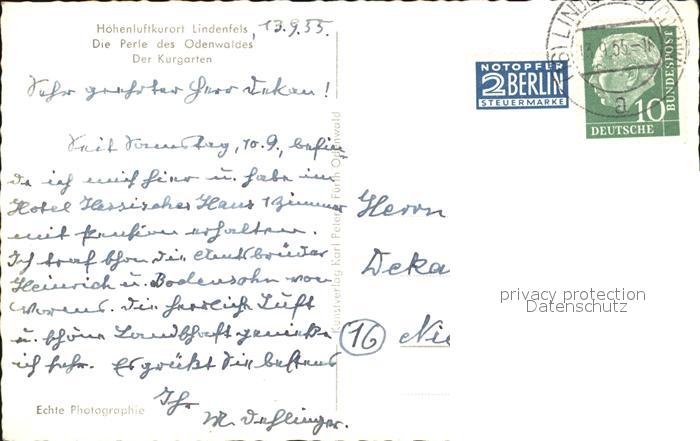 Höhenluftkurort Lindenfels
Die Perle des Odenwaldes
Der Kurgarten
13.9.55.
Sehr geehrter Herr Dekan!
Seit Samstag, 10.9., befin
de ich mich hier u. habe im
Hotel Hessisches Haus 1 Zimmer
mit Pension erhalten.
Ich traf schon die Amtsbrüder
Heinrich u. Bodensohn von
Worms. Die herrliche Luft
u. schöne Landschaft genieße
ich sehr. Es grüßt Sie bestens
Ihr
M. Dehlinger.
Echte Photographie
Kunstverlag Karl Peters, Fürth Odenwald
NOTOPFER
2 BERLIN
STEUERMARKE
LINDENFELS
13.9.55
a
10
DEUTSCHE
BUNDESPOST
Herrn
Deka
16 Nie
privacy protection
Datenschutz